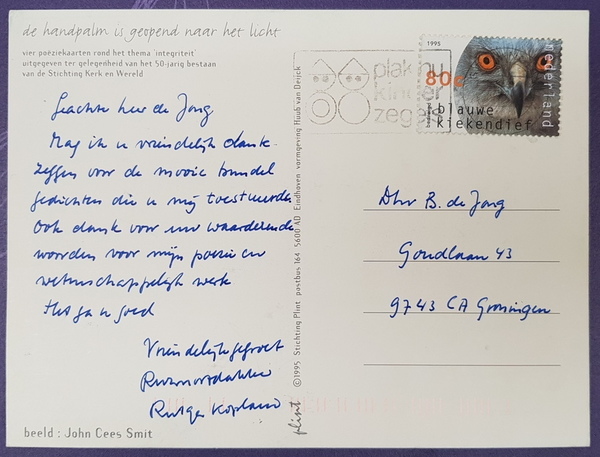 de handpalm is geopend naar het licht
vier poëziekaarten rond het thema 'integriteit'
uitgegeven ter gelegenheid van het 50-jarig bestaan
van de Stichting Kerk en Wereld
Geachte heer de Jong
Mag ik u vriendelijk dank-
zeggen voor de mooie bundel
gedichten die u mij toestuurde.
Ook dank voor uw waarderende
woorden voor mijn poezie en
wetenschappelijk werk
Het ga u goed
Vriendelijk gegroet
Rutger Kopland
beeld : John Cees Smit
plint ©1995 Stichting Plint postbus 164 5600 AD Eindhoven vormgeving Huub van Deijck
plak nu
kinder
zegels
1995
80c
nederland
bedreigd
blauwe
kiekendief
Dhr B. de Jong
Goudlaan 43
9743 CA Groningen